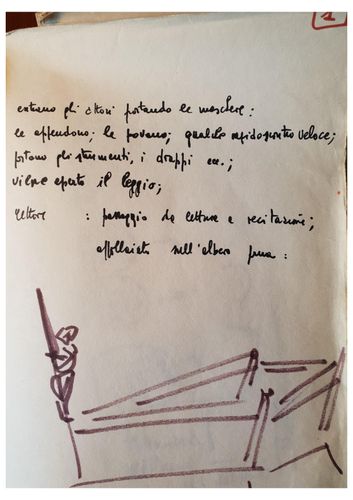 1
entrano gli attori portando le maschere :
le appendono ; le provano ; qualche rapido scontro veloce ;
portano gli strumenti, i drappi ecc. ;
viene aperto il leggio ;
lettore : passaggio da lettura a recitazione ;
appollaiato sull'albero prua :